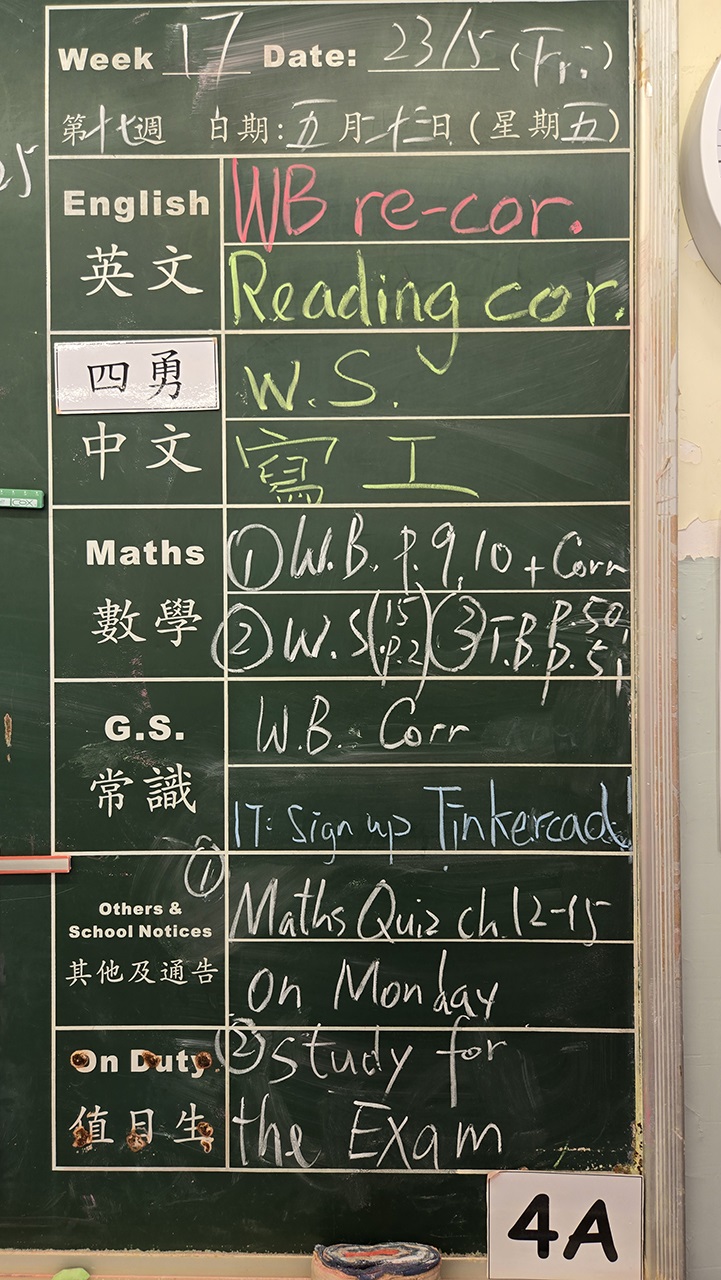 Week 17 Date: 23/5 (Fri.)
第十七週 日期: 五月二十三日 (星期五)
25
English
英文
WB re-cor.
Reading cor.
四勇
中文
W.S.
寫工
Maths
數學
① W.B. p.9,10 + Corr
② W.S (15 p.2) ③ T.B p.50, p.51
G.S.
常識
W.B. Corr
IT: Sign up Tinkercad!
Others &
School Notices
其他及通告
① Maths Quiz ch.12-15
on Monday
On Duty
值日生
② study for
the Exam
4A